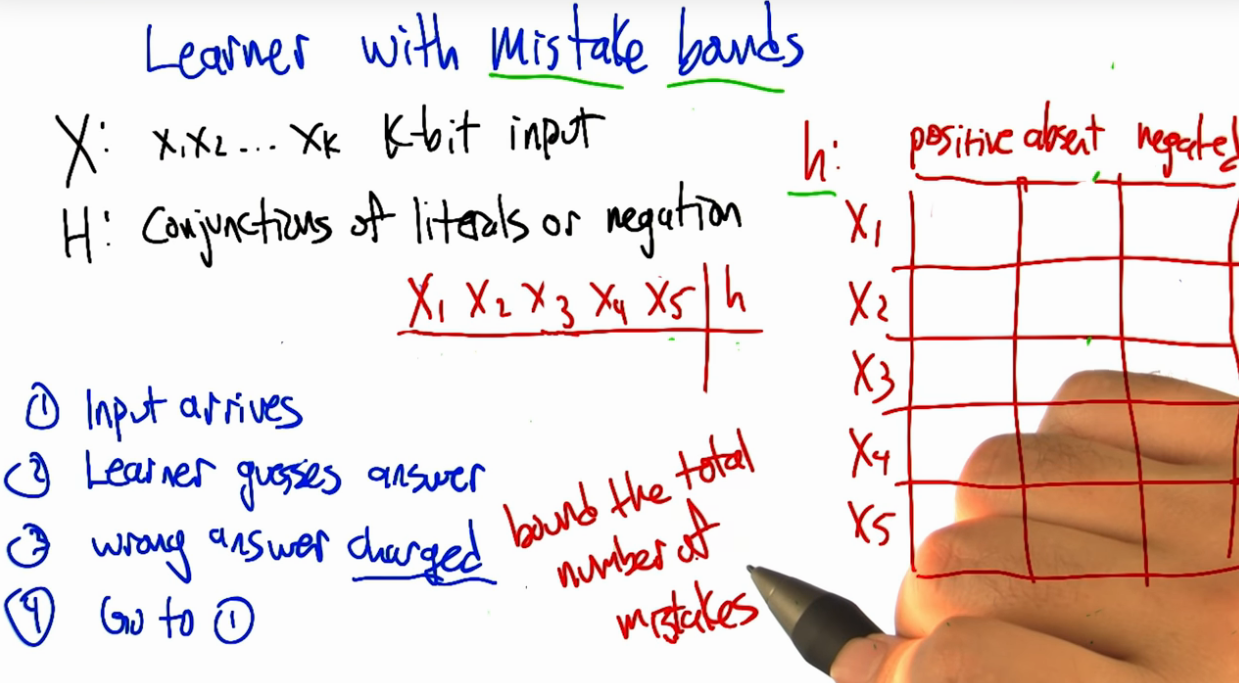 Learner with mistake bands
X: x1x2... xk k-bit input
H: Conjunctions of literals or negation
X1 X2 X3 X4 X5 h
① Input arrives
② Learner guesses answer
③ wrong answer charged
④ Go to ①
bound the total
number of
mistakes
h: positive absent negated
X1
X2
X3
X4
X5